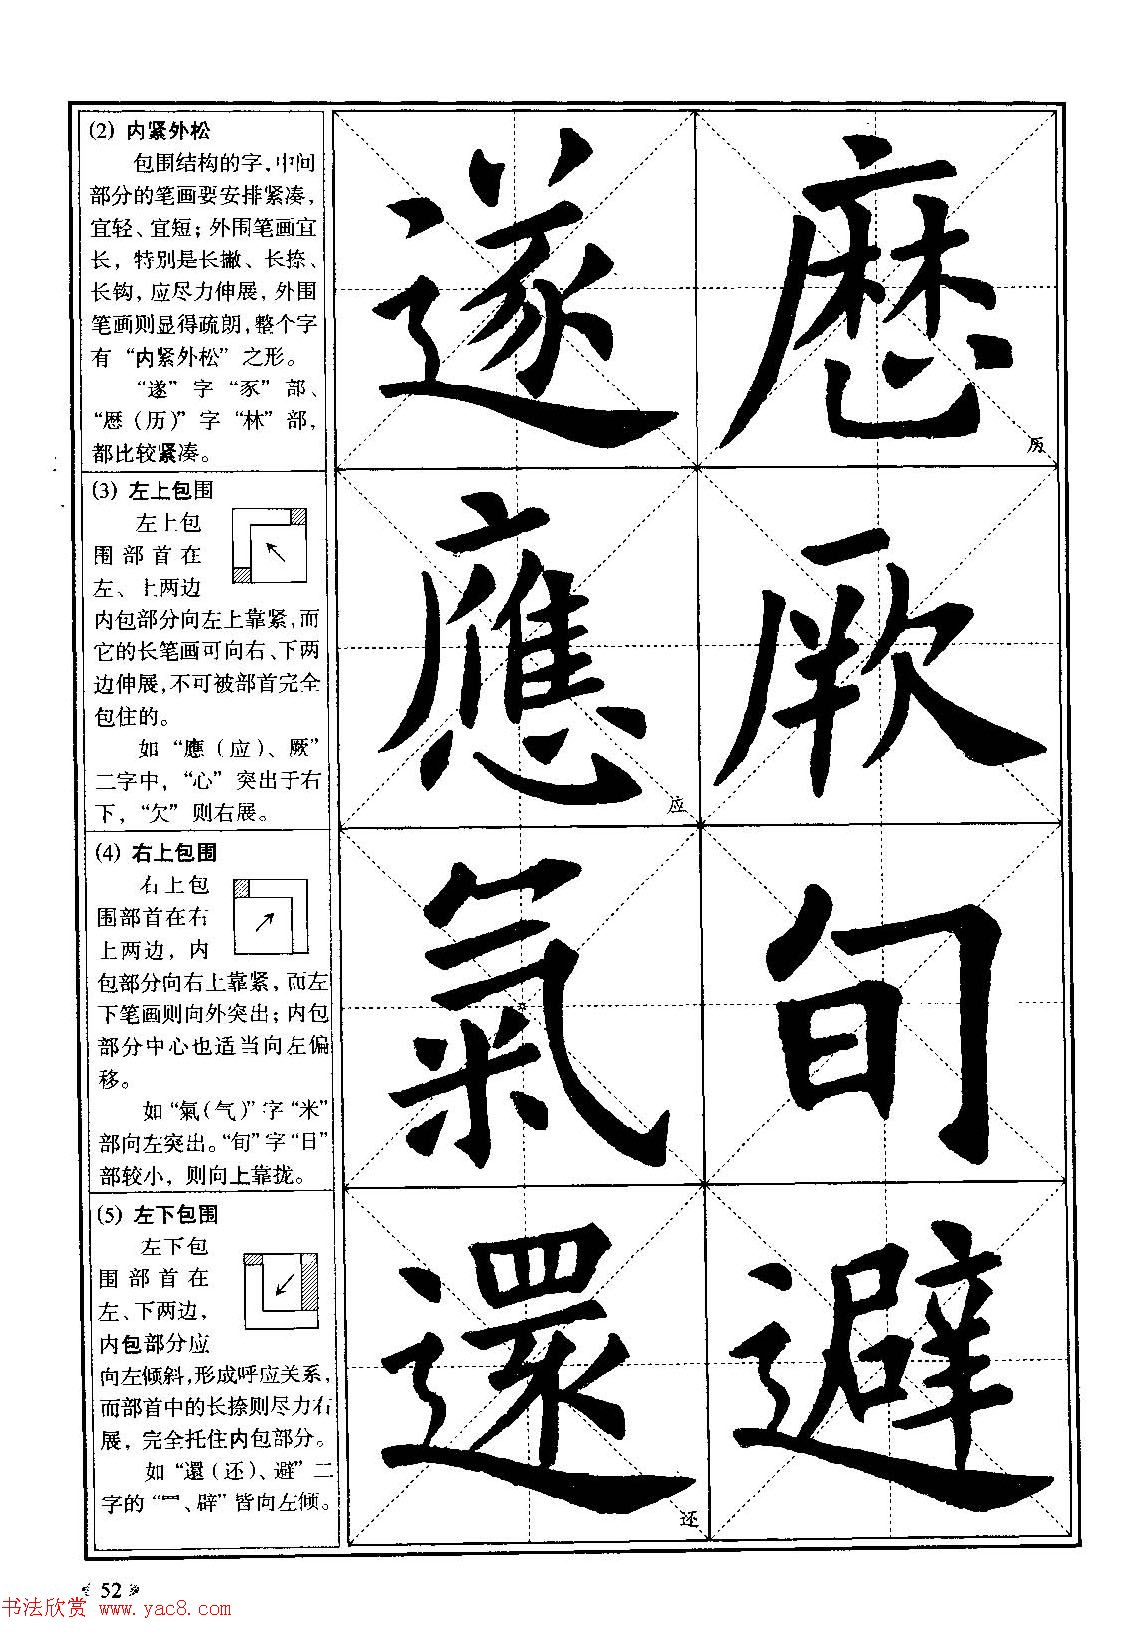 (2) 内紧外松
包围结构的字，中间
部分的笔画要安排紧凑，
宜轻、宜短；外围笔画宜
长，特别是长撇、长捺、
长钩，应尽力伸展，外围
笔画则显得疏朗，整个字
有“内紧外松”之形。
“遂”字“豕”部、
“厯（历）”字“林”部，
都比较紧凑。
遂 厯
历
(3) 左上包围
左上包
围部首在
左、上两边
内包部分向左上靠紧，而
它的长笔画可向右、下两
边伸展，不可被部首完全
包住的。
如“應（应）、厥”
二字中，“心”突出于右
下，“欠”则右展。
應 厥
应
(4) 右上包围
右上包
围部首在右
上两边，内
包部分向右上靠紧，而左
下笔画则向外突出；内包
部分中心也适当向左偏
移。
如“氣（气）”字“米”
部向左突出。“旬”字“日”
部较小，则向上靠拢。
氣 旬
(5) 左下包围
左下包
围部首在
左、下两边，
内包部分应
向左倾斜，形成呼应关系，
而部首中的长捺则尽力右
展，完全托住内包部分。
如“還（还）、避”二
字的“罒、辟”皆向左倾。
還 避
还
52
书法欣赏 www.yac8.com